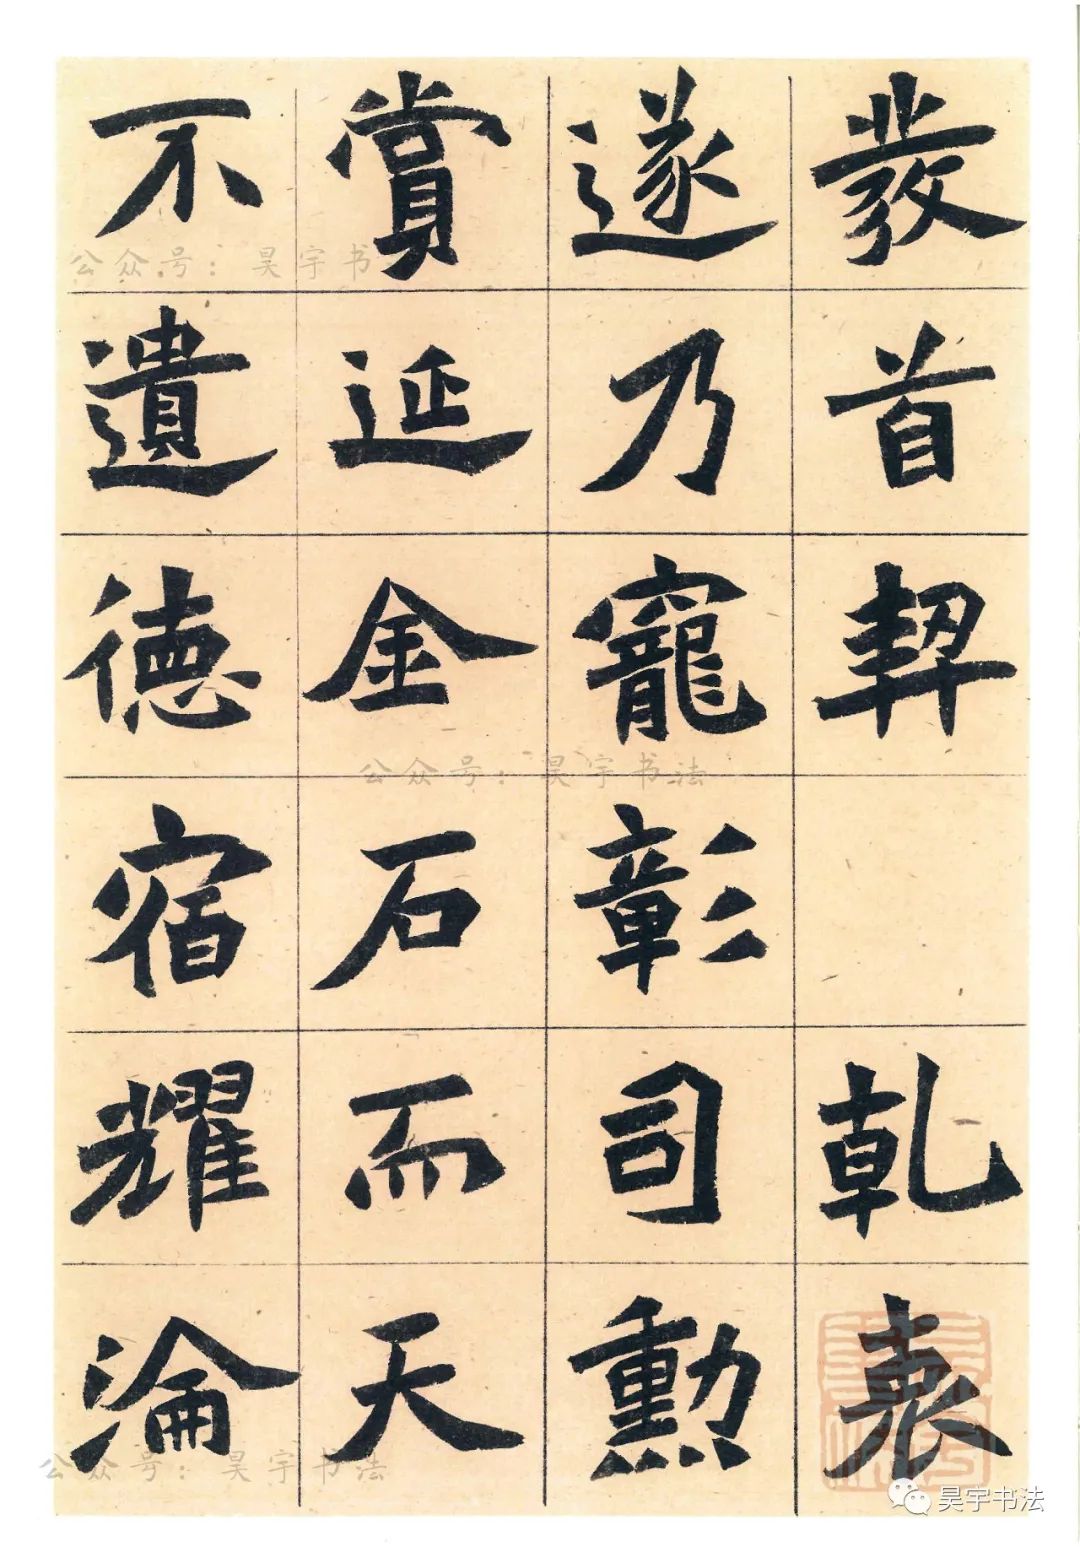 發首契 乾
遂乃寵彰司勳
賞延金石而天
不遺德宿耀淪
公众号：昊宇书
公众号：昊宇书法
公众号：昊宇书法
昊宇书法